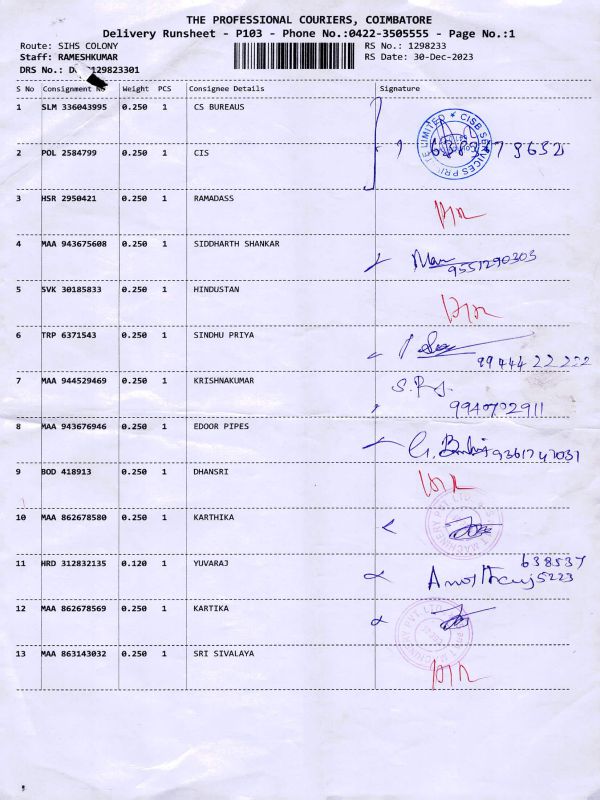 THE PROFESSIONAL COURIERS, COIMBATORE
Delivery Runsheet - P103 - Phone No.:0422-3505555 - Page No.:1
Route: SIHS COLONY
Staff: RAMESHKUMAR
DRS No.: 129823301
RS No.: 1298233
RS Date: 30-Dec-2023
S No Consignment Weight PCS Consignee Details Signature
1 SLM 336043995 0.250 1 CS BUREAUS
2 POL 2584799 0.250 1 CIS
CISB SERVICES LIMITED
3 HSR 2950421 0.250 1 RAMADASS
4 MAA 943675608 0.250 1 SIDDHARTH SHANKAR
9551290303
5 SVK 30185833 0.250 1 HINDUSTAN
6 TRP 6371543 0.250 1 SINDHU PRIYA
99444 22 222
7 MAA 944529469 0.250 1 KRISHNAKUMAR
9940702911
8 MAA 943676946 0.250 1 EDOOR PIPES
9361747031
9 BOD 418913 0.250 1 DHANSRI
10 MAA 862678580 0.250 1 KARTHIKA
11 HRD 312832135 0.120 1 YUVARAJ
638537
5223
12 MAA 862678569 0.250 1 KARTIKA
13 MAA 863143032 0.250 1 SRI SIVALAYA